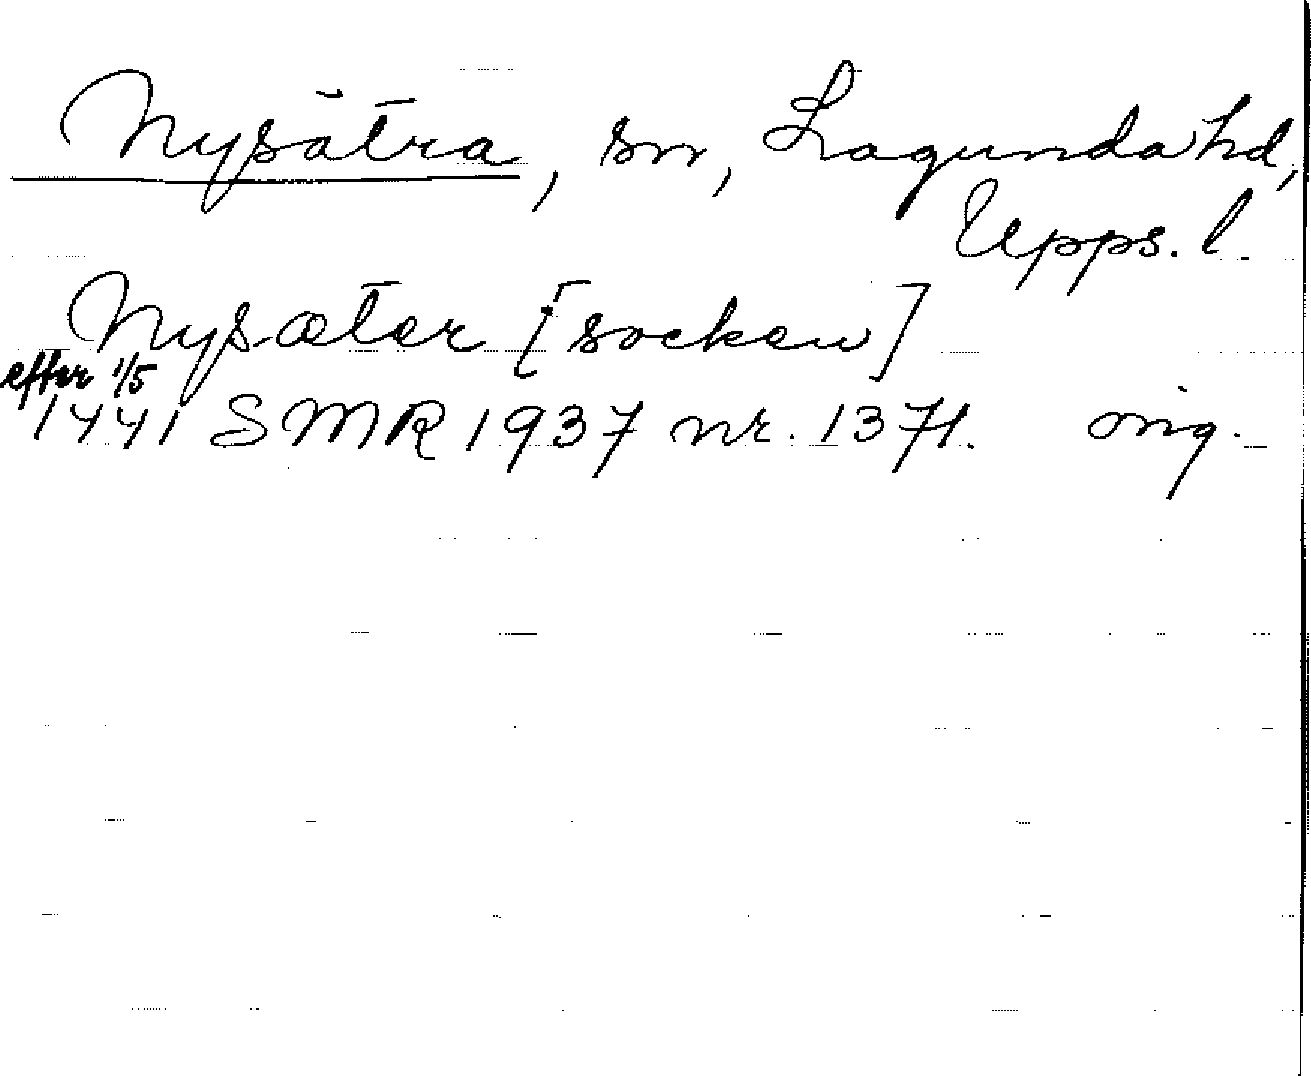 Nysätra, sn, Lagunda hd,
Upps. l.
Nysæter [socken]
efter 1/5
1441 SMR 1937 nr. 1371. orig.